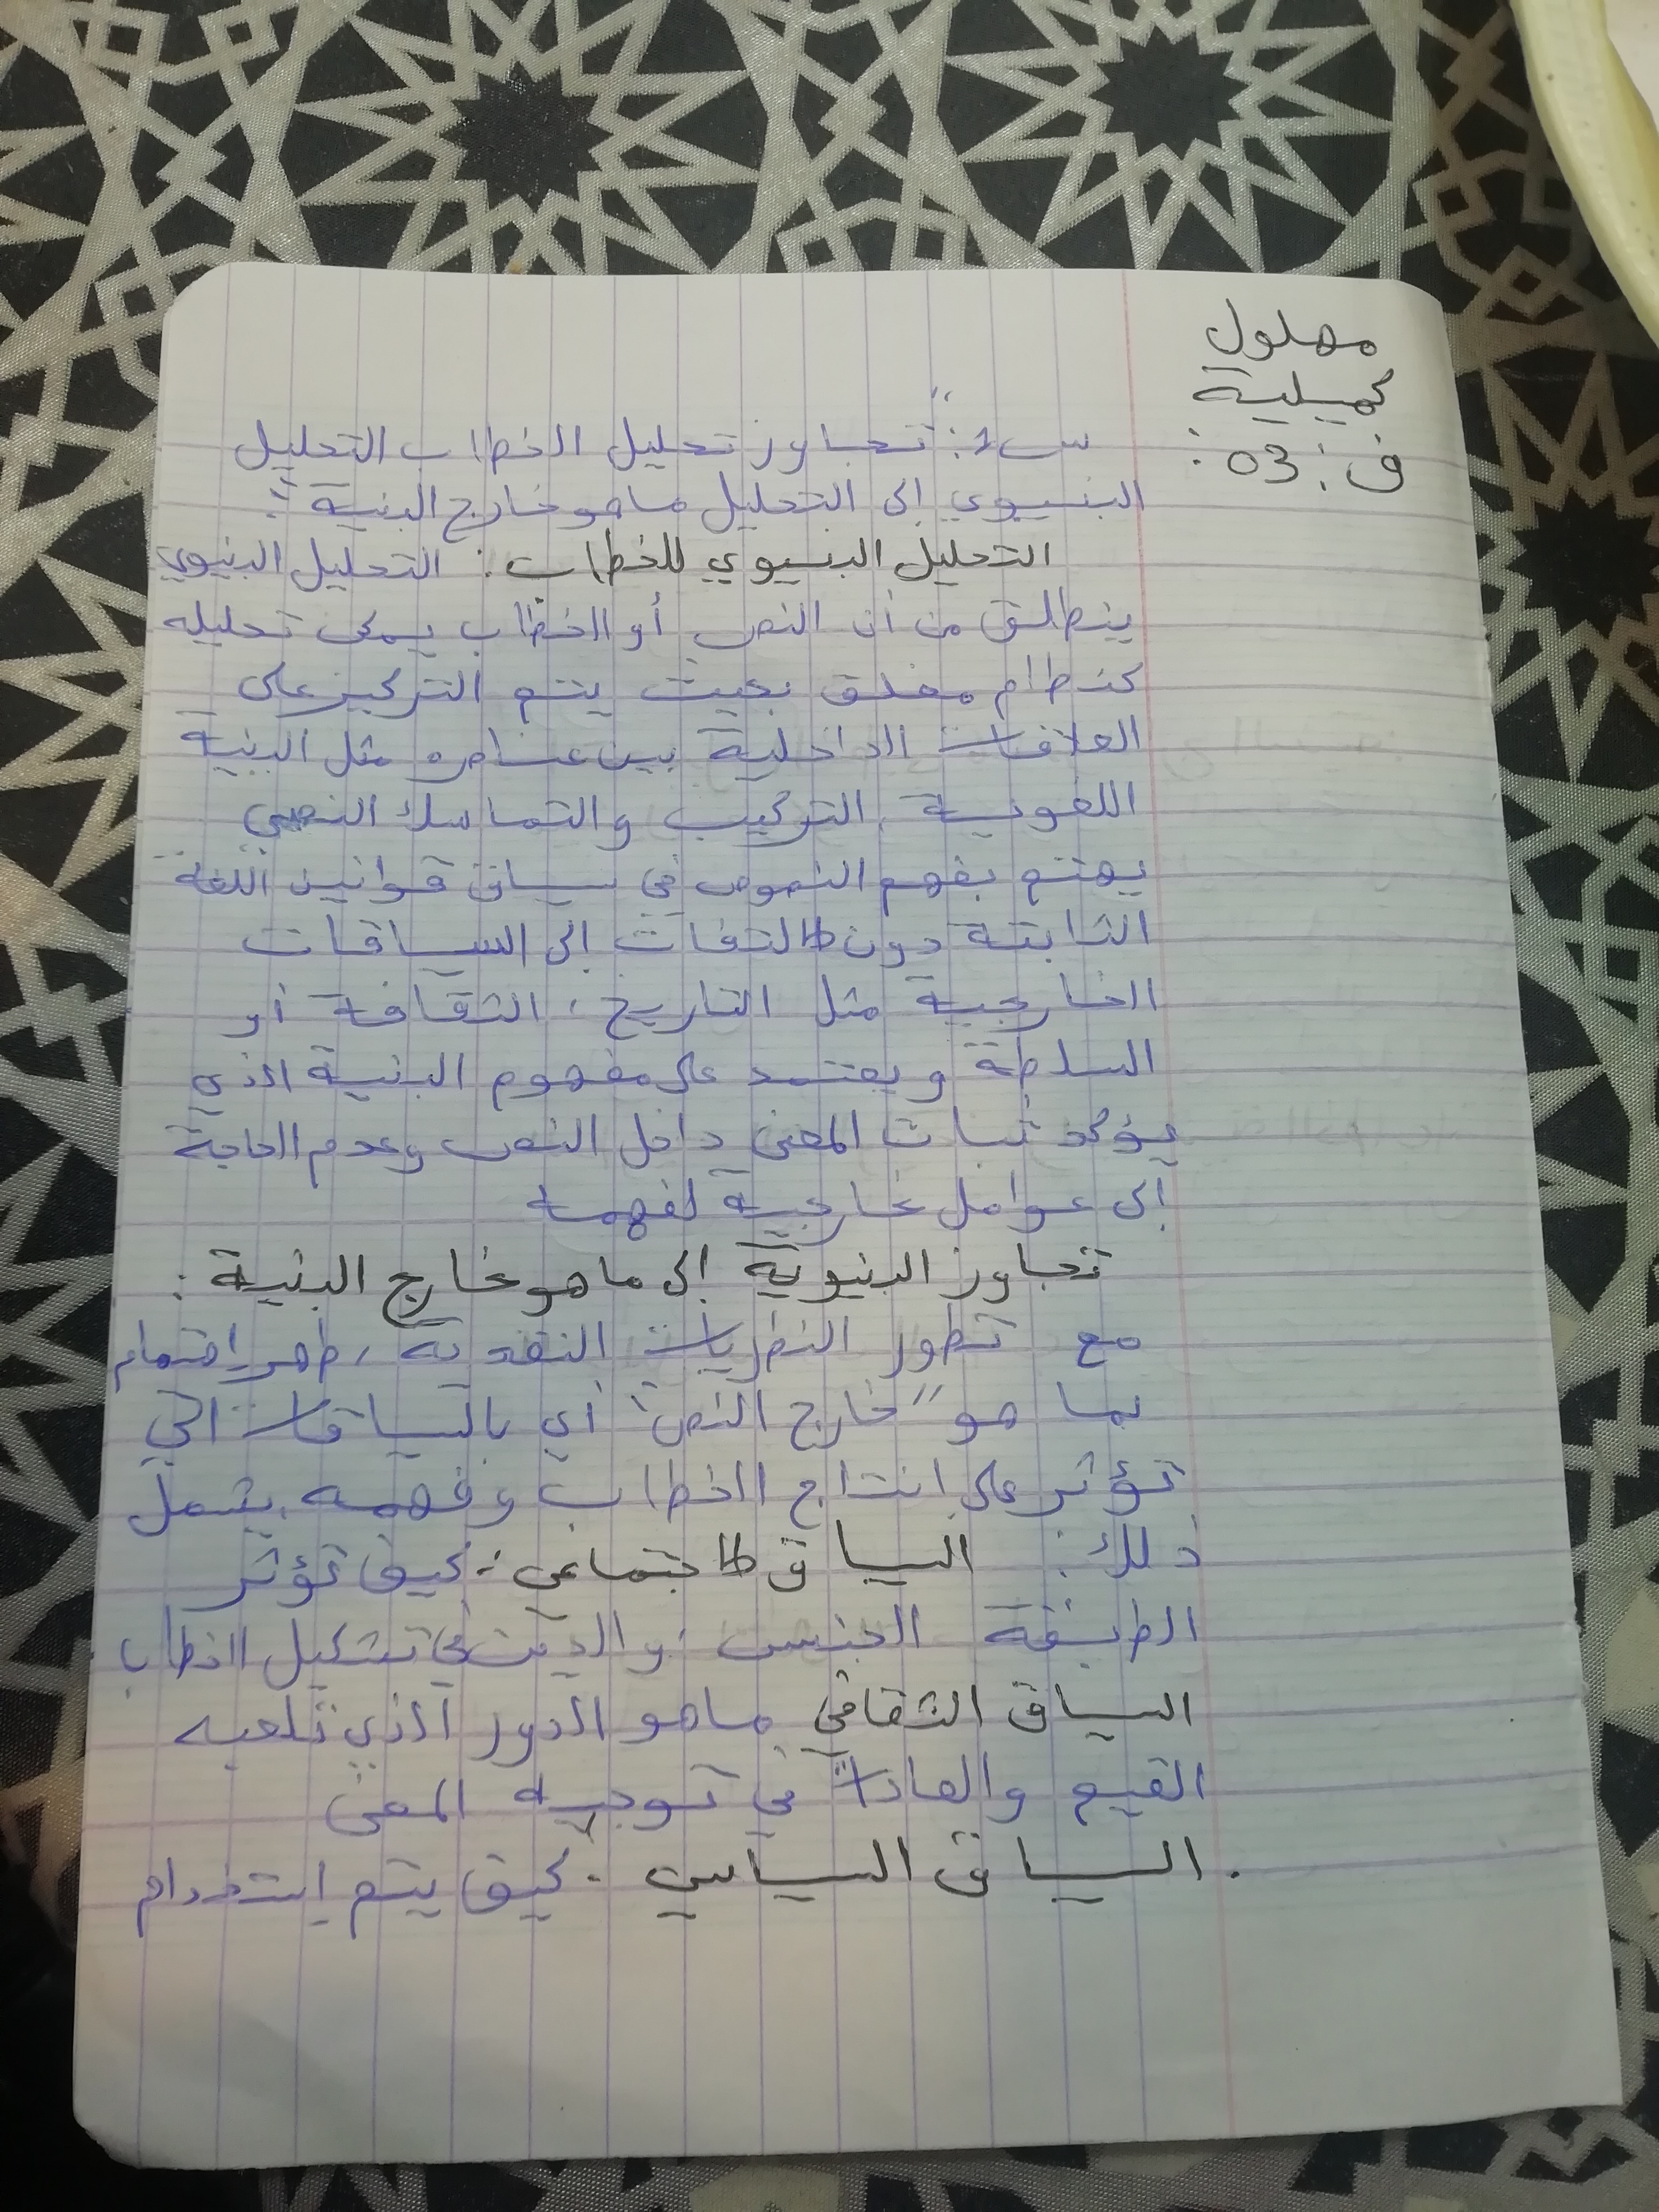 مهلول
كميلية
ف: 03:
س1: "تجاوز تحليل الخطاب التحليل
البنيوي إلى التحليل ماهو خارج البنية":
التحليل البنيوي للخطاب: التحليل البنيوي
ينطلق من أن النص أو الخطاب يمكن تحليله
كنظام مغلق بحيث يتم التركيز على
العلاقات الداخلية بين عناصره مثل البنية
اللغوية، التركيب والتماسك النصي
يهتم بفهم النصوص في سياق قوانين اللغة
الثابتة دون الالتفات إلى السياقات
الخارجية مثل التاريخ، الثقافة أو
السلطة ويعتمد على مفهوم البنية الذي
يؤكد ثبات المعنى داخل النص وعدم الحاجة
إلى عوامل خارجية لفهمه
تجاوز البنيوية إلى ماهو خارج البنية:
مع تطور النظريات النقدية، ظهر اهتمام
بما هو "خارج النص" أي بالسياقات التي
تؤثر على انتاج الخطاب وفهمه يشمل
ذلك: السياق الاجتماعي: كيف تؤثر
الطبقة الجنس، والدين في تشكيل الخطاب
السياق الثقافي ماهو الدور الذي تلعبه
القيم والعادات في توجيه المعنى
. السياق السياسي. كيف يتم إستخدام